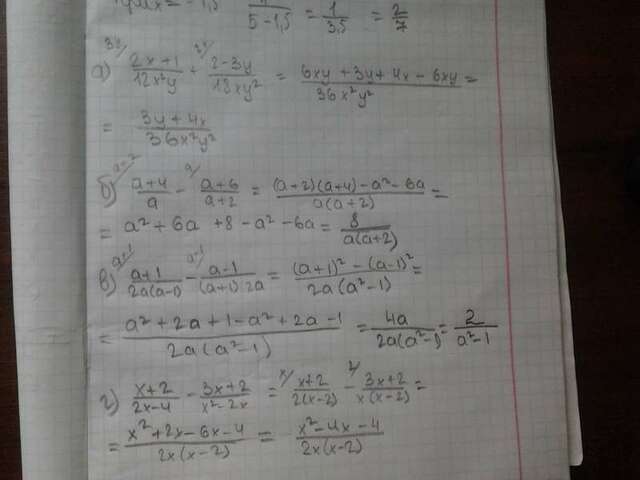 5-1,5 = 1/3,5 = 2/7
а) (2x+1)/(12x²y) + (2-3y)/(18xy²) = (6xy+3y+4x-6xy)/(36x²y²) =
= (3y+4x)/(36x²y²)
б) (a+4)/a - (a+6)/(a+2) = ((a+2)(a+4)-a²-6a)/(a(a+2)) =
= a²+6a+8-a²-6a = 8/(a(a+2))
в) (a+1)/(2a(a-1)) - (a-1)/((a+1)2a) = ((a+1)²-(a-1)²)/(2a(a²-1)) =
= (a²+2a+1-a²+2a-1)/(2a(a²-1)) = 4a/(2a(a²-1)) = 2/(a²-1)
г) (x+2)/(2x-4) - (3x+2)/(x²-2x) = x/ (x+2)/(2(x-2)) - 2/ (3x+2)/(x(x-2)) =
= (x²+2x-6x-4)/(2x(x-2)) = (x²-4x-4)/(2x(x-2))